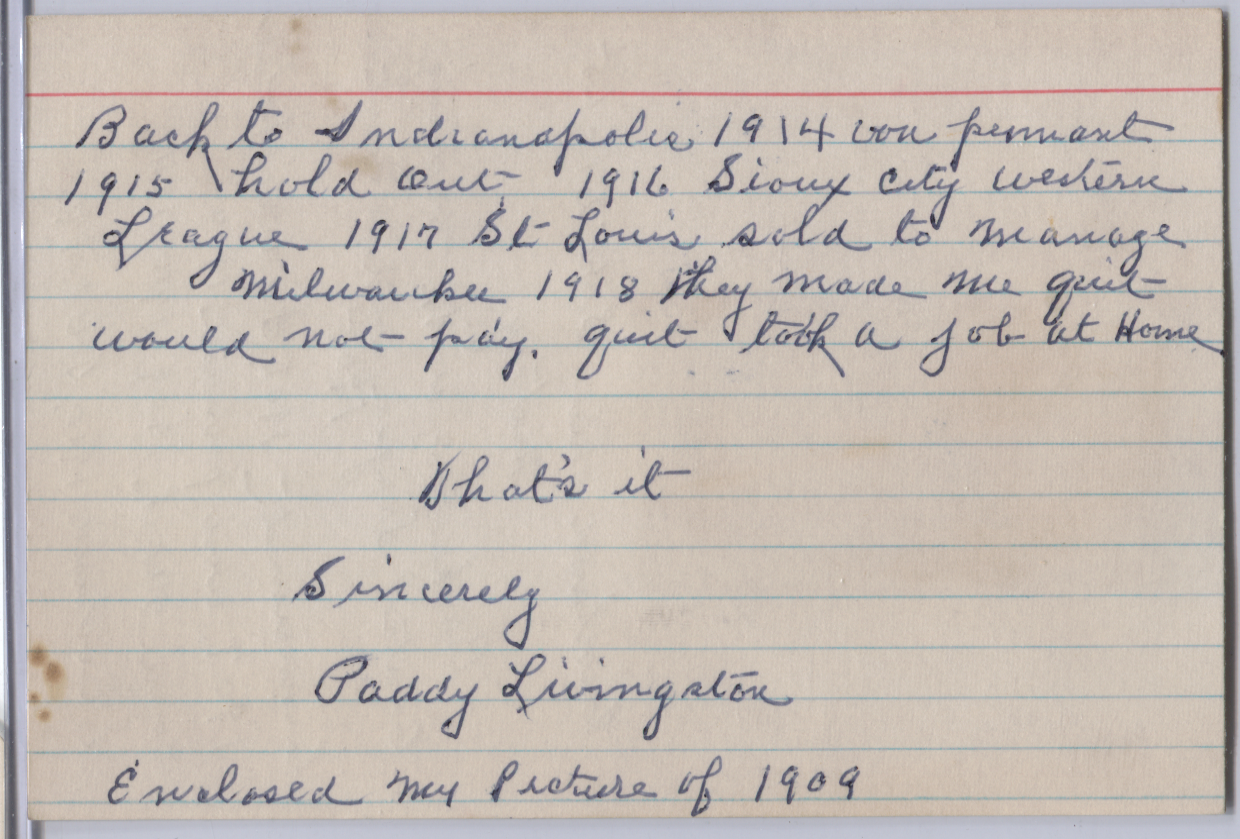 Back to Indianapolis 1914 won pennant
1915 hold out 1916 Sioux City western
League 1917 St Louis sold to manage
Milwaukee 1918 they made me quit
would not pay. quit took a job at Home
That's it
Sincerely
Paddy Livingston
Enclosed my Picture of 1909